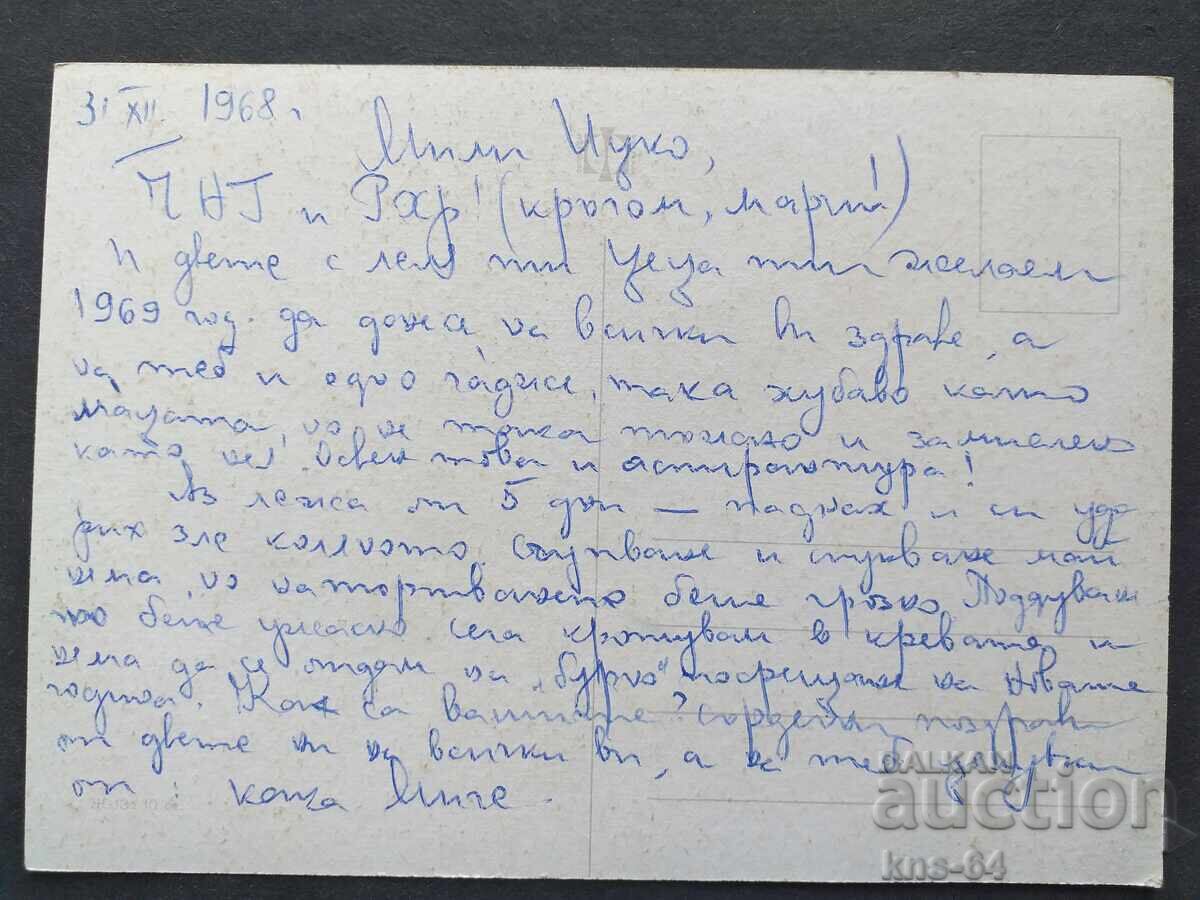 31 XII 1968 г.
Мили Цуко,
ЧНГ и РХр! (кръгом, марш!)
И двете с леля ти Цеца ти желаем
1969 год. да донесе на всички ви здраве, а
на теб и едно гадже, така хубаво като
мацата, но не така тъжно и замислено
като нея. Освен това и аспирантура!
Аз лежа от 5 дни — паднах и си уда
рих зле коляното. Счупване и пукване май
няма, но натъртването беше грозно. Подуване
то беше ужасно. Сега кротувам в кревата и
няма да се отдам на „бурно" посрещане на Новата
година. Как са вашите? Сърдечни поздрави
от двете ни на всички ви, а на теб целувки
от: кака Миче.
BALKAN
auction
kns-64